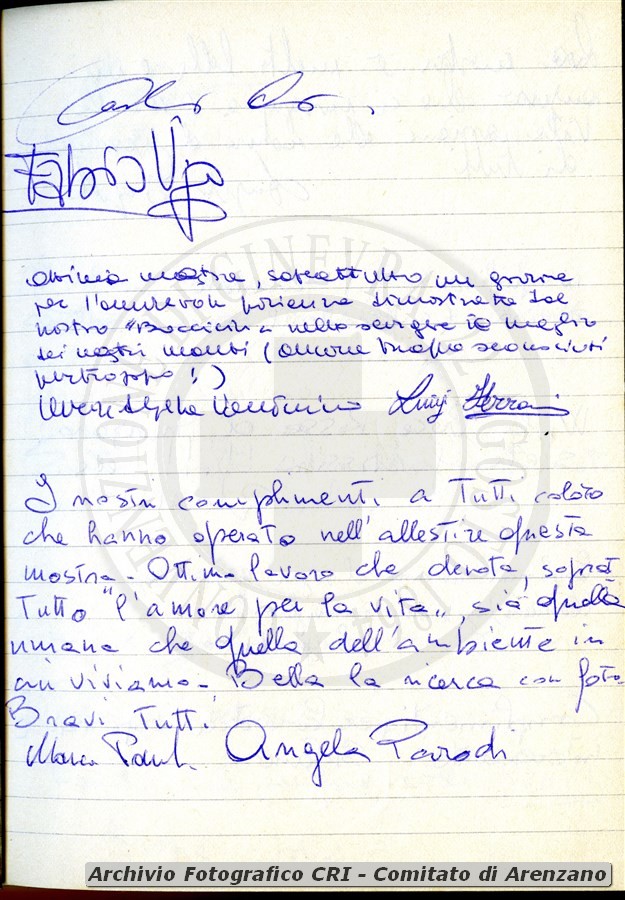 Fabio Vip
Ottima mostra, soprattutto un grazie
per l'amorevole pazienza dimostrata dal
nostro "Boccicin" nello scegliere il meglio
dei nostri monti (ancora troppo sconosciuti
purtroppo!)
Luigi Ferrari
I nostri complimenti a Tutti coloro
che hanno operato nell'allestire questa
mostra - Ottimo lavoro che denota, soprat
Tutto "l'amore per la vita", sia quella
umana che quella dell'ambiente in
cui viviamo - Bella la ricerca con foto
Bravi Tutti
Angela Parodi
CONVENZIONE DI GINEVRA 22 AGOSTO 1864
Archivio Fotografico CRI - Comitato di Arenzano